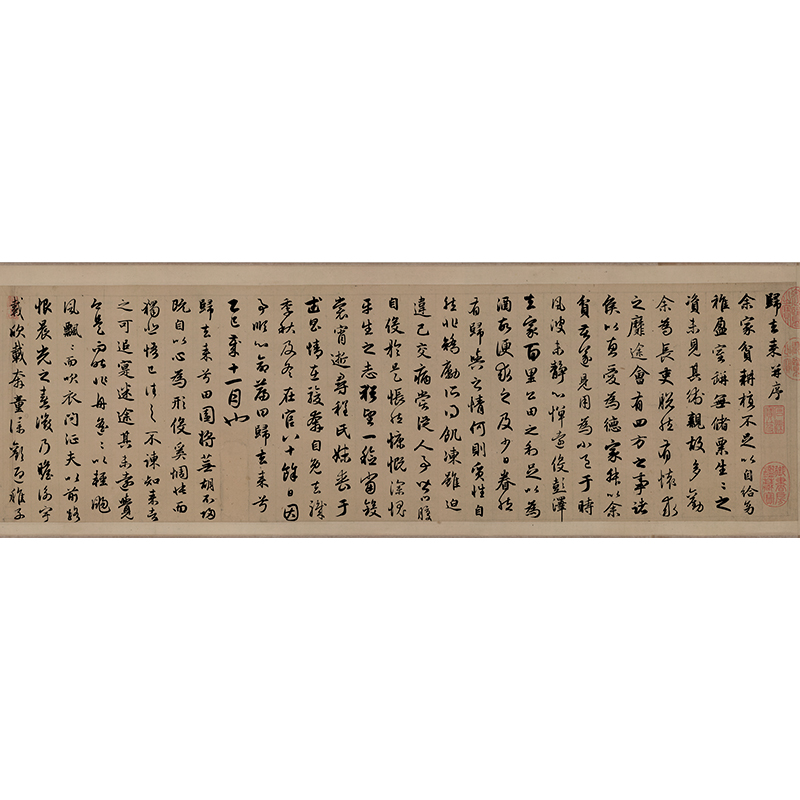 歸去来并序
余家貧耕植不足以自給幼
稚盈室缾無儲粟生〻之
資未見其術親故多勸
余為長吏脫然有懷求
之靡途會有四方之事諸
侯以惠愛為德家叔以余
貧苦遂見用為小邑于時
風波未靜心憚遠役彭澤
去家百里公田之利足以為
酒故便求之及少日眷然
有歸與之情何則質性自
然非矯勵所得飢凍雖迫
違己交病嘗從人事皆口腹
自役於是悵然慷慨深愧
平生之志猶望一稔當斂
裳宵逝尋程氏妹喪于
武昌情在駿奔自免去職
季秋及冬在官八十餘日因
事順心命篇曰歸去来兮
乙巳歲十一月也
歸去来兮田園將蕪胡不歸
既自以心為形役奚惆悵而
獨悲悟已往之不諫知来者
之可追寔迷途其未遠覺
今是而昨非舟遙〻以輕颺
風飄〻而吹衣問征夫以前路
恨晨光之熹微乃瞻衡宇
載欣載奔童僕歡迎稚子